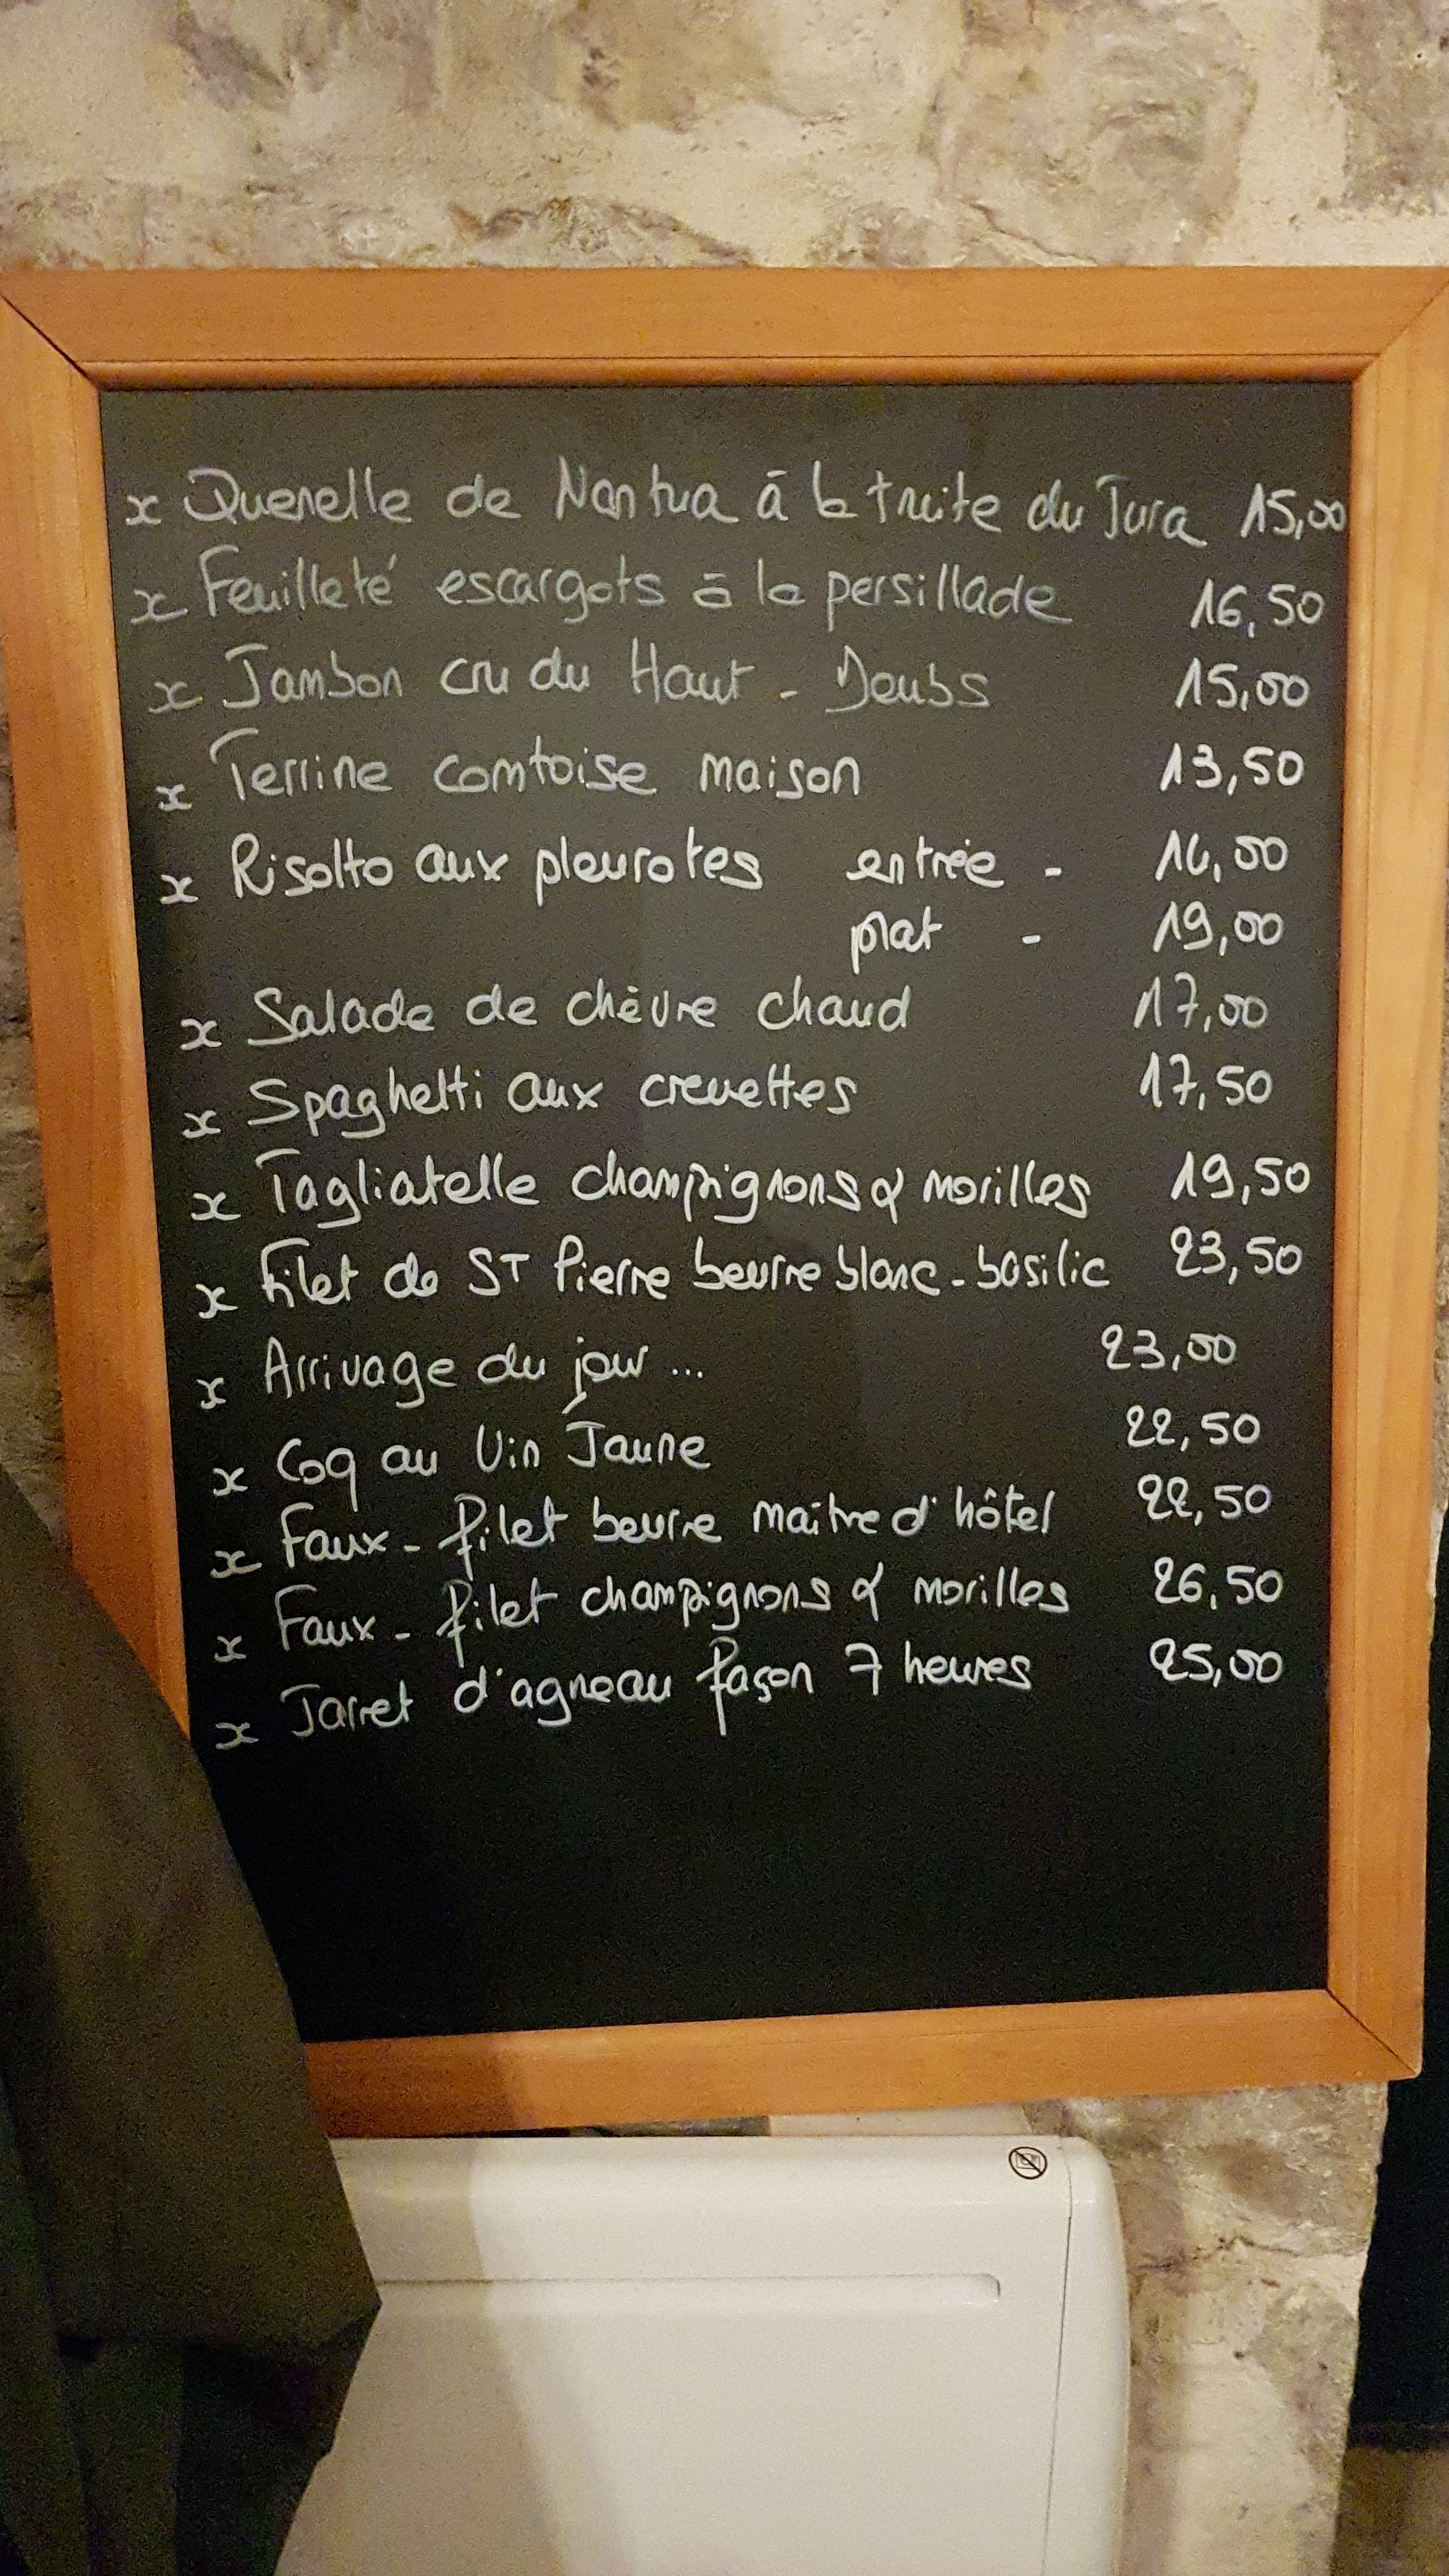 x Quenelle de Nantua à la truite du Jura 15,00
x Feuilleté escargots à la persillade 16,50
x Jambon cru du Haut - Doubs 15,00
x Terrine comtoise maison 13,50
x Risotto aux pleurotes entrée - 16,00
plat - 19,00
x Salade de chèvre chaud 17,00
x Spaghetti aux crevettes 17,50
x Tagliatelle champignons & morilles 19,50
x Filet de ST Pierre beurre blanc - basilic 23,50
x Arrivage du jour ... 23,00
x Coq au Vin Jaune 22,50
x Faux - filet beurre maître d'hôtel 22,50
x Faux - filet champignons & morilles 26,50
x Jarret d'agneau façon 7 heures 25,00